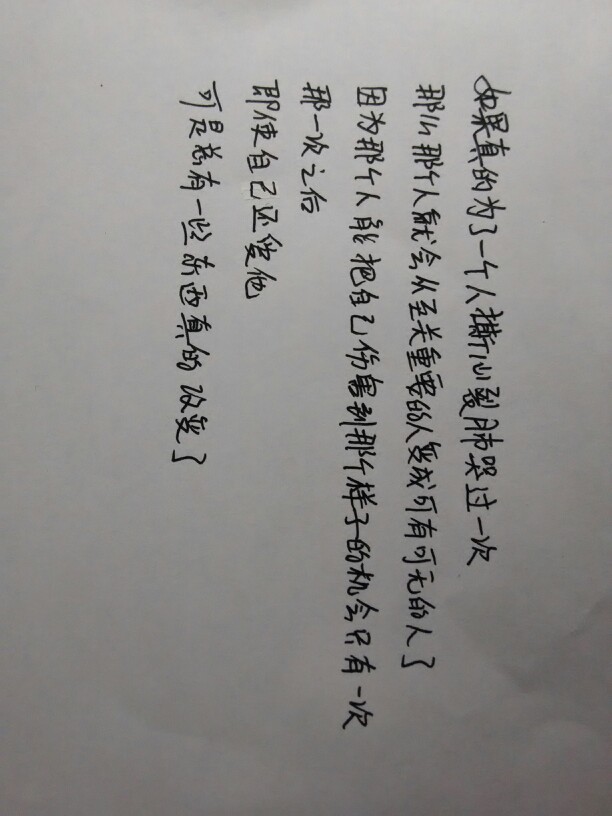 如果真的为了一个人撕心裂肺哭过一次
那么那个人就会从至关重要的人变成可有可无的人了
因为那个人能把自己伤害到那个样子的机会只有一次
那一次之后
即使自己还爱他
可是总有一些东西真的改变了